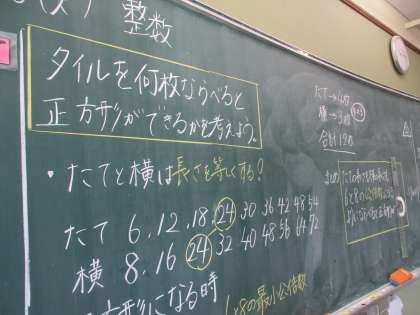 整数
タイルを何枚ならべると
正方形ができるかを考えよう。
・たてと横は長さを等しくする?
たて 6, 12, 18, 24 30 36 42 48 54
横 8, 16 24 32 40 48 56 64 72
方形になる時
6と8の最小公倍数
たて→4枚
横→3枚
合計12枚
まとめ
6と8の公倍数